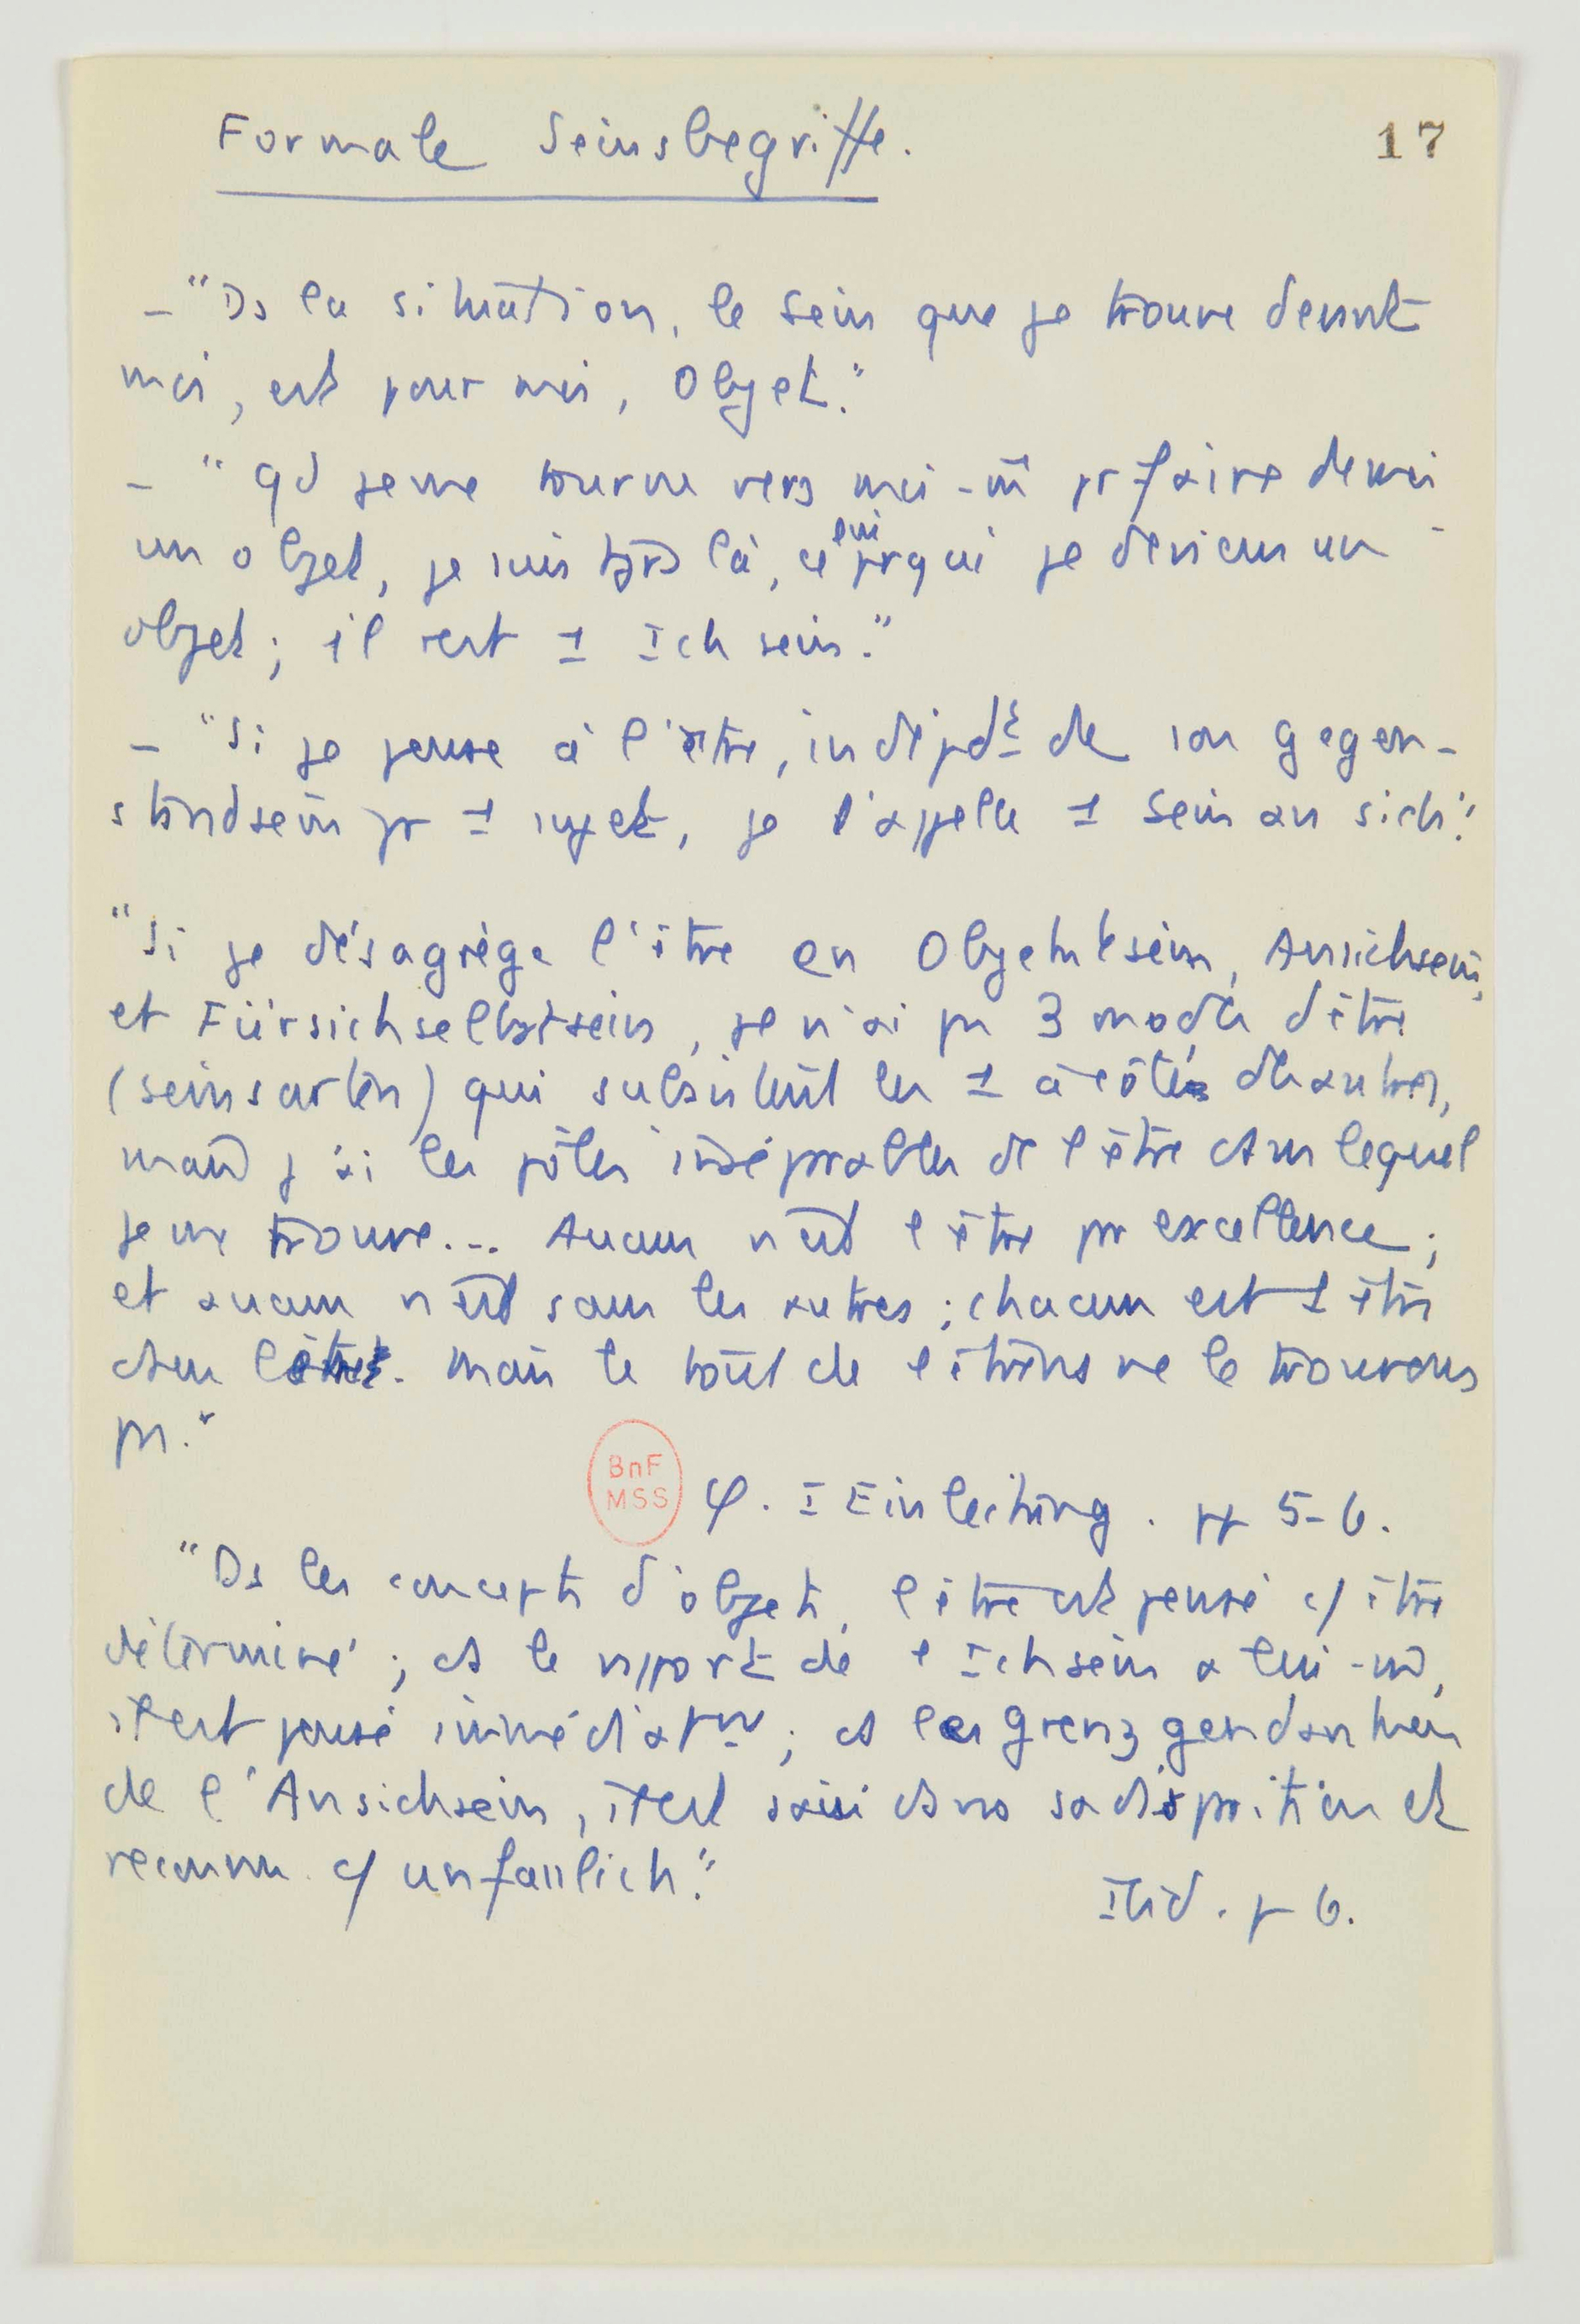 Formale Seinsbegriffe.
17
– "Ds la situation, le Sein que je trouve devant
moi, est pour moi, Objet."
– "qd je me tourne vers moi-m̄ pr faire de moi
lui
un objet, je suis tjrs là, ce pr qui je deviens un
objet; il reste 1 Ich sein."
– "Si je pense à l'être, indépdt de son gegen-
standsein pr 1 sujet, je l'appelle 1 Sein an sich."
"Si je désagrège l'être en Objektsein, Ansichsein,
et Fürsichselbstsein, je n'ai pas 3 modes d'être
(seinsarten) qui subsistent les 1 à côté des autres,
mais j'ai les pôles inséparables de l'être dans lequel
je me trouve... Aucun n'est l'être par excellence;
et aucun n'est sans les autres; chacun est 1 être
dans l'être. Mais le tout de l'être ns ne le trouvons
pas."
BnF
MSS
φ. I Einleitung. pp 5-6.
"Ds les concepts d'objets, l'être est pensé c/ être
déterminé; ds le rapport de l'Ichsein à lui-m̄,
il est pensé immédiatmt; ds les grenzgendanken
de l'Ansichsein, il est saisi dans sa disparition et
reconnu c/ unfasslich."
Ibid. p 6.